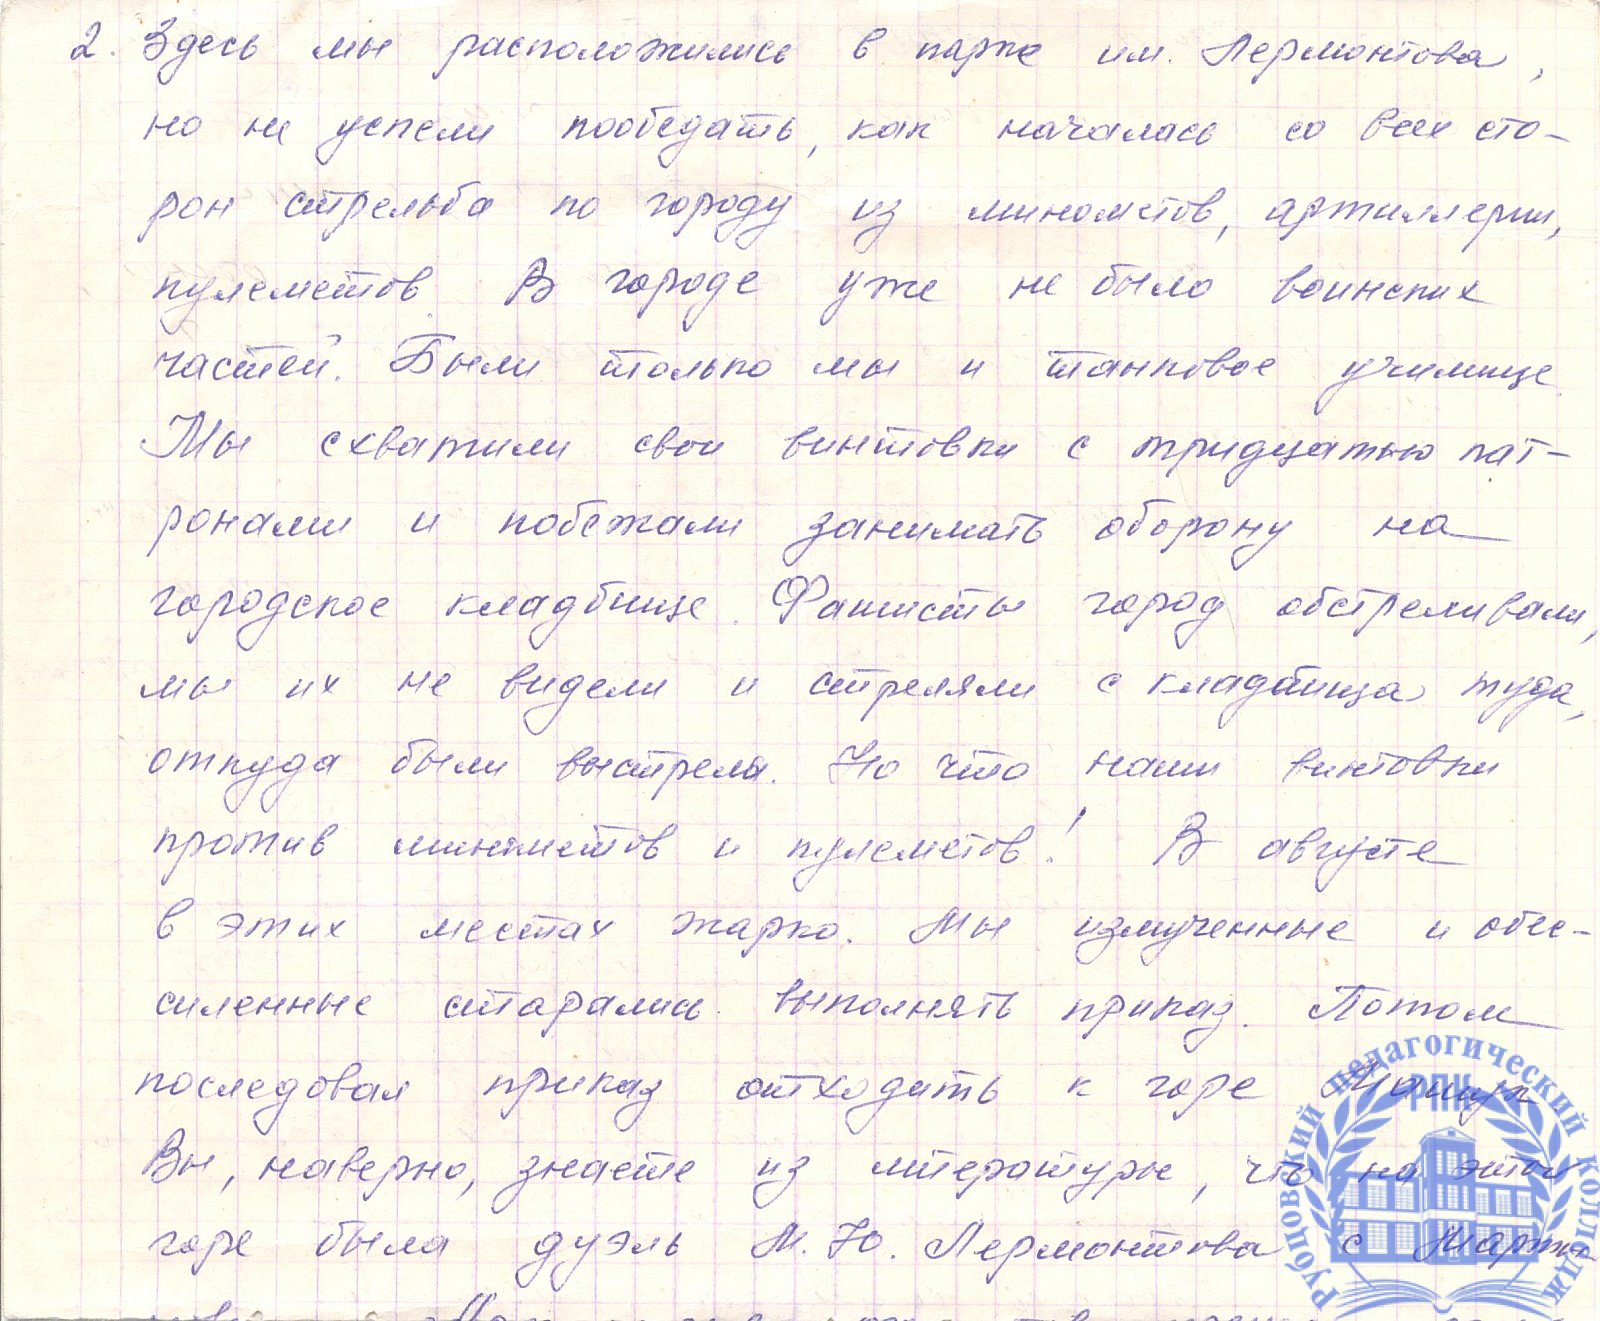 2. Здесь мы расположились в парке им. Лермонтова,
но не успели пообедать, как началась со всех сто-
рон стрельба по городу из минометов, артиллерии,
пулеметов. В городе уже не было воинских
частей. Были только мы и танковое училище
Мы схватили свои винтовки с тридцатью пат-
ронами и побежали занимать оборону на
городское кладбище. Фашисты город обстреливали,
мы их не видели и стреляли с кладбища туда,
откуда были выстрелы. Но что наши винтовки
против минометов и пулеметов! В августе
в этих местах жарко. Мы измученные и обес-
силенные старались выполнять приказ. Потом
последовал приказ отходить к горе Машук
Вы, наверно, знаете из литературы, что на этой
горе была дуэль М. Ю. Лермонтова с
Рубцовский педагогический колледж
РПК